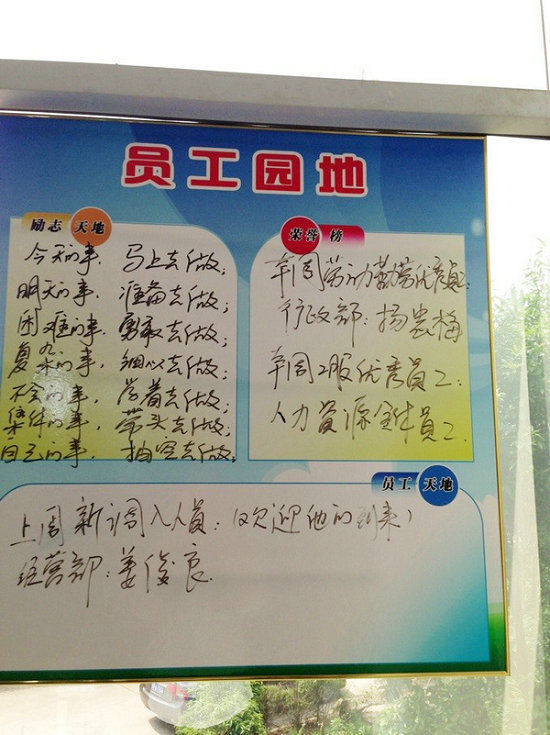 员工园地
励志天地
今天的事,马上去做;
明天的事,准备去做;
困难的事,勇敢去做;
复杂的事,细心去做;
不会的事,学着去做;
集体的事,带头去做;
自己的事,抽空去做。
荣誉榜
本周劳动勤劳优秀员工:
行政部:杨农梅
本周工服优秀员工:
人力资源全体员工
员工天地
上周新调入人员:(欢迎他的到来)
经营部:姜俊良